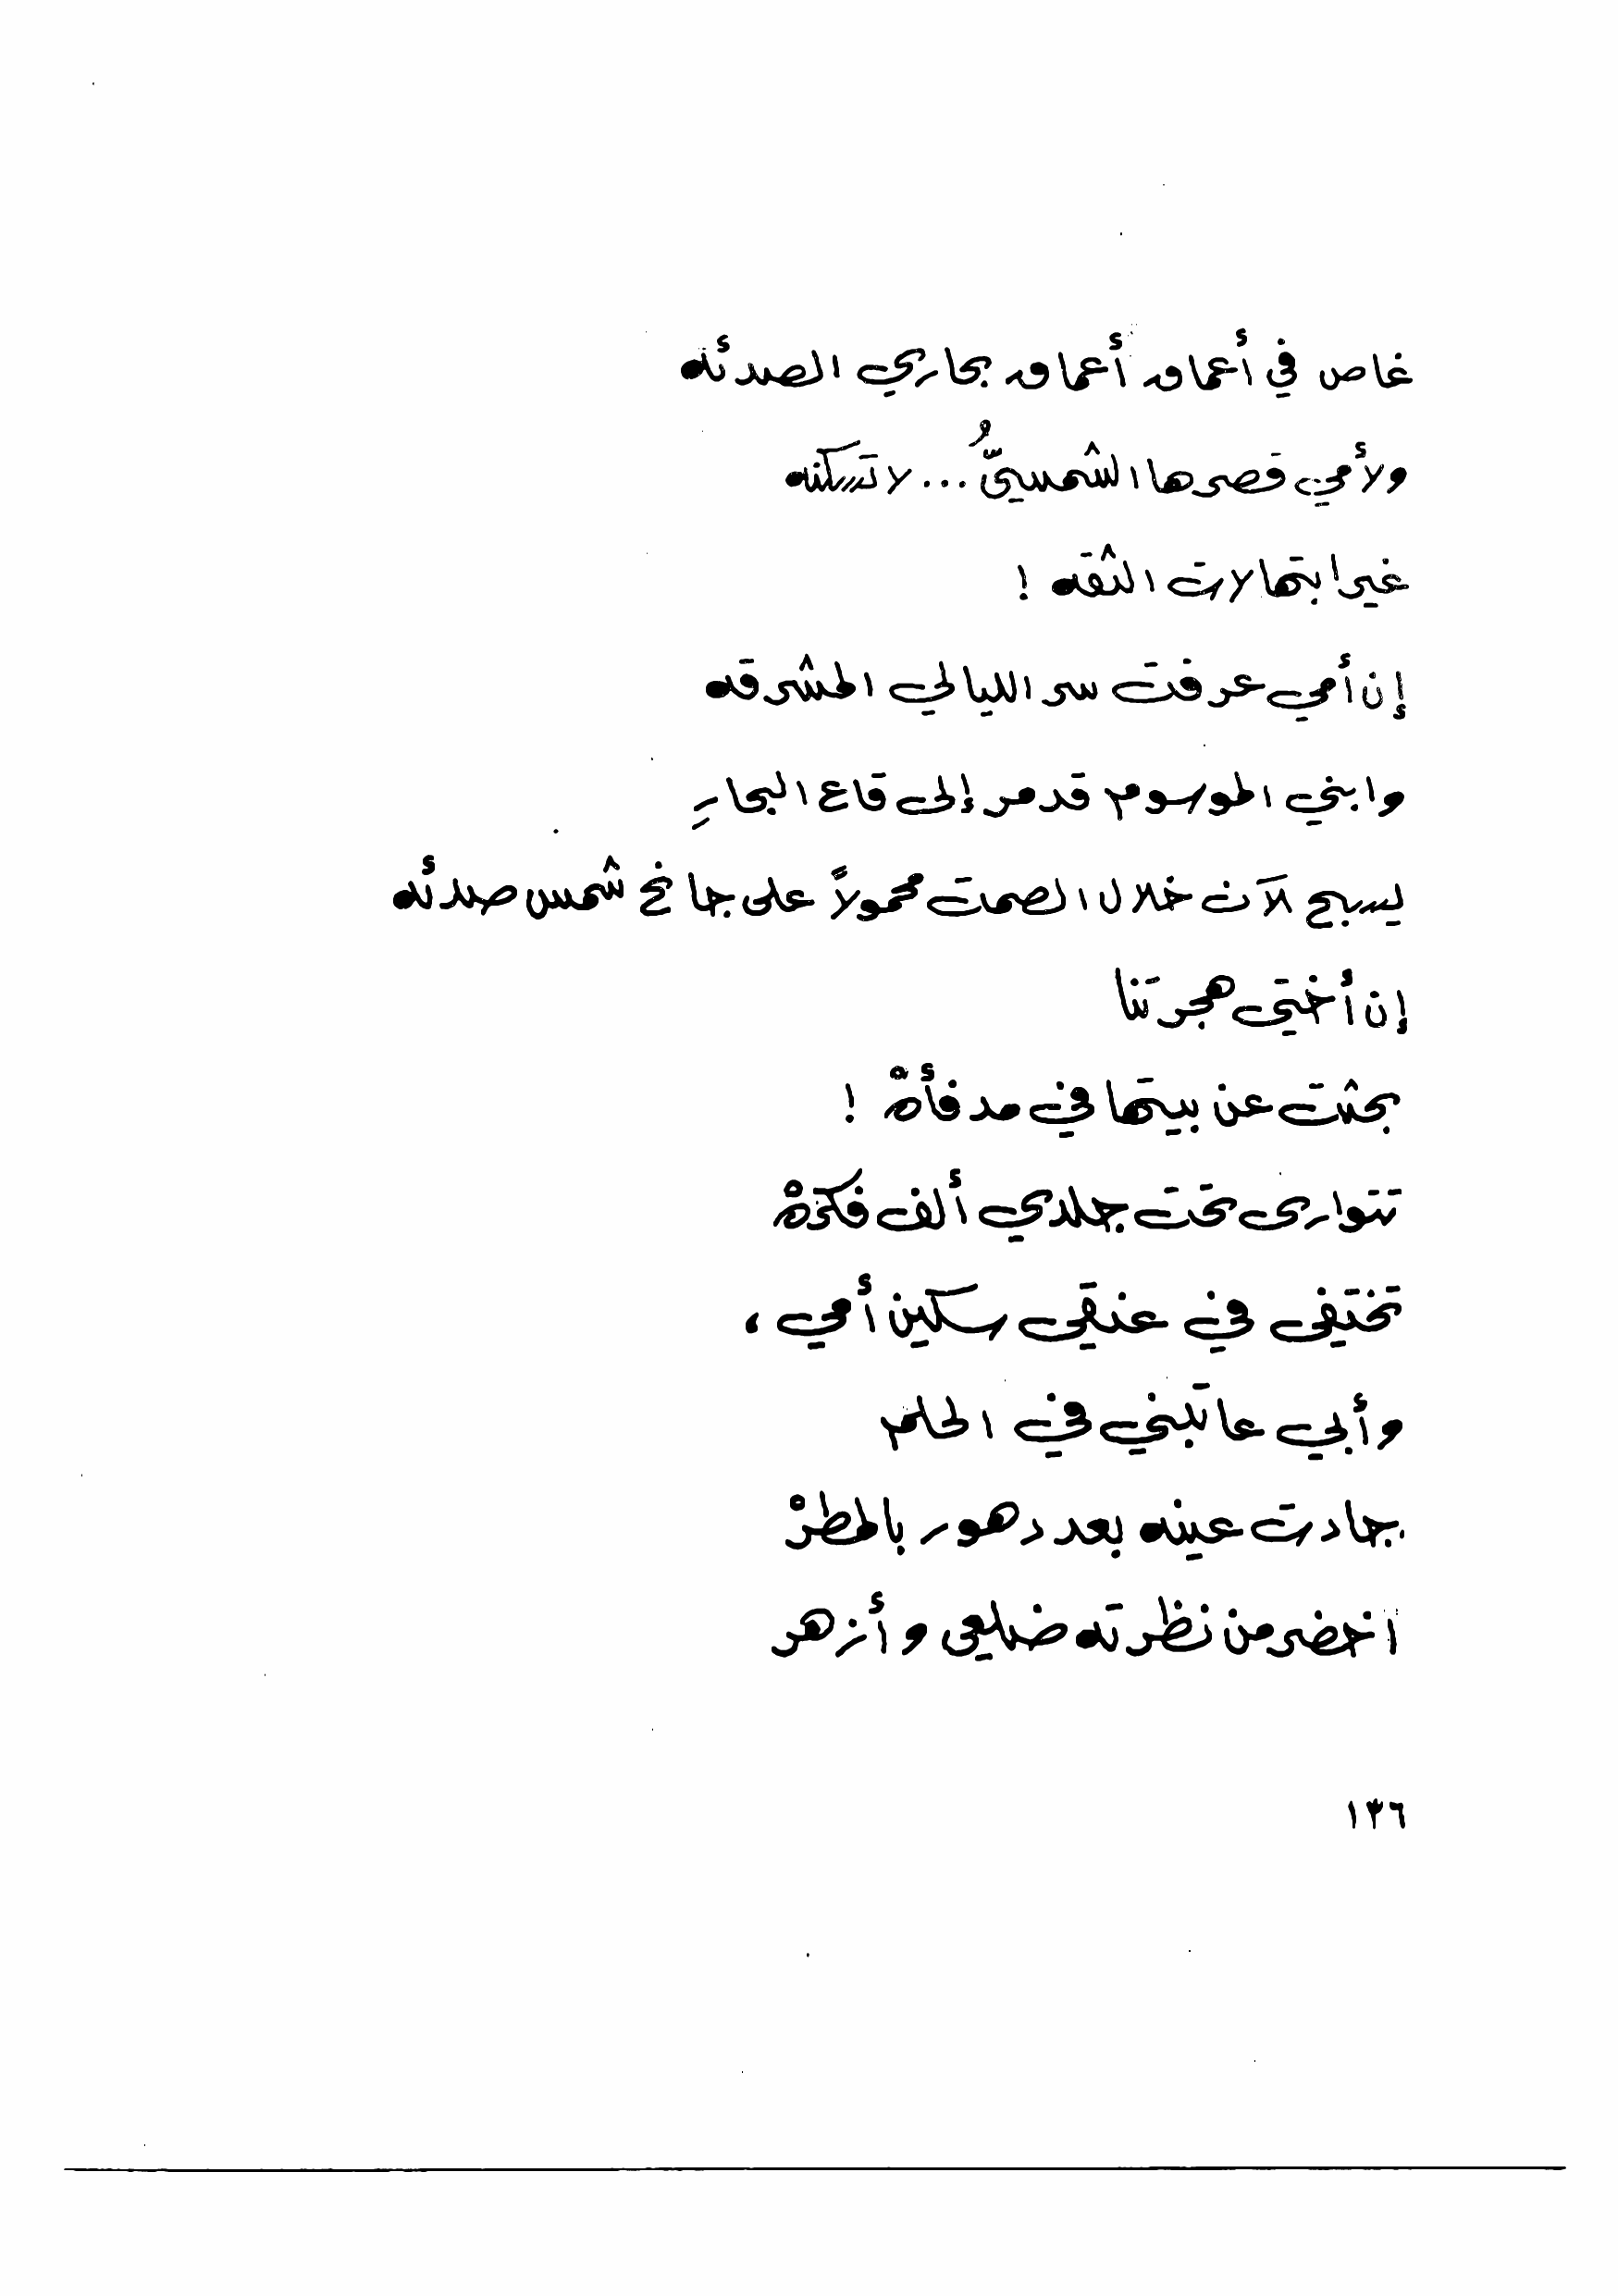 غاص في أعماق أعماق بحاري الصدئه
ولأمي قصرها الشمسيُّ... لا تسكنه
غير ابتهالات الثقه !
إن أمي عرفت سر الليالي المشرقه
وابني الموسوم قد مر إلى قاع البحارِ
يسبح الآن خلال الصمت محمولاً على جانح شمس صدئه
إن أختي هجرتنا
بحثت عن بيتها في مدفأهْ !
تتوارى تحت جلدي ألف فكرهْ
تختفي في عنقي سكين أمي ،
وأبي عاتبني في الحلم
جادت عينه بعد دهور بالمطرْ
اخضر من نظرته ضلعي وأزهر
١٣٦